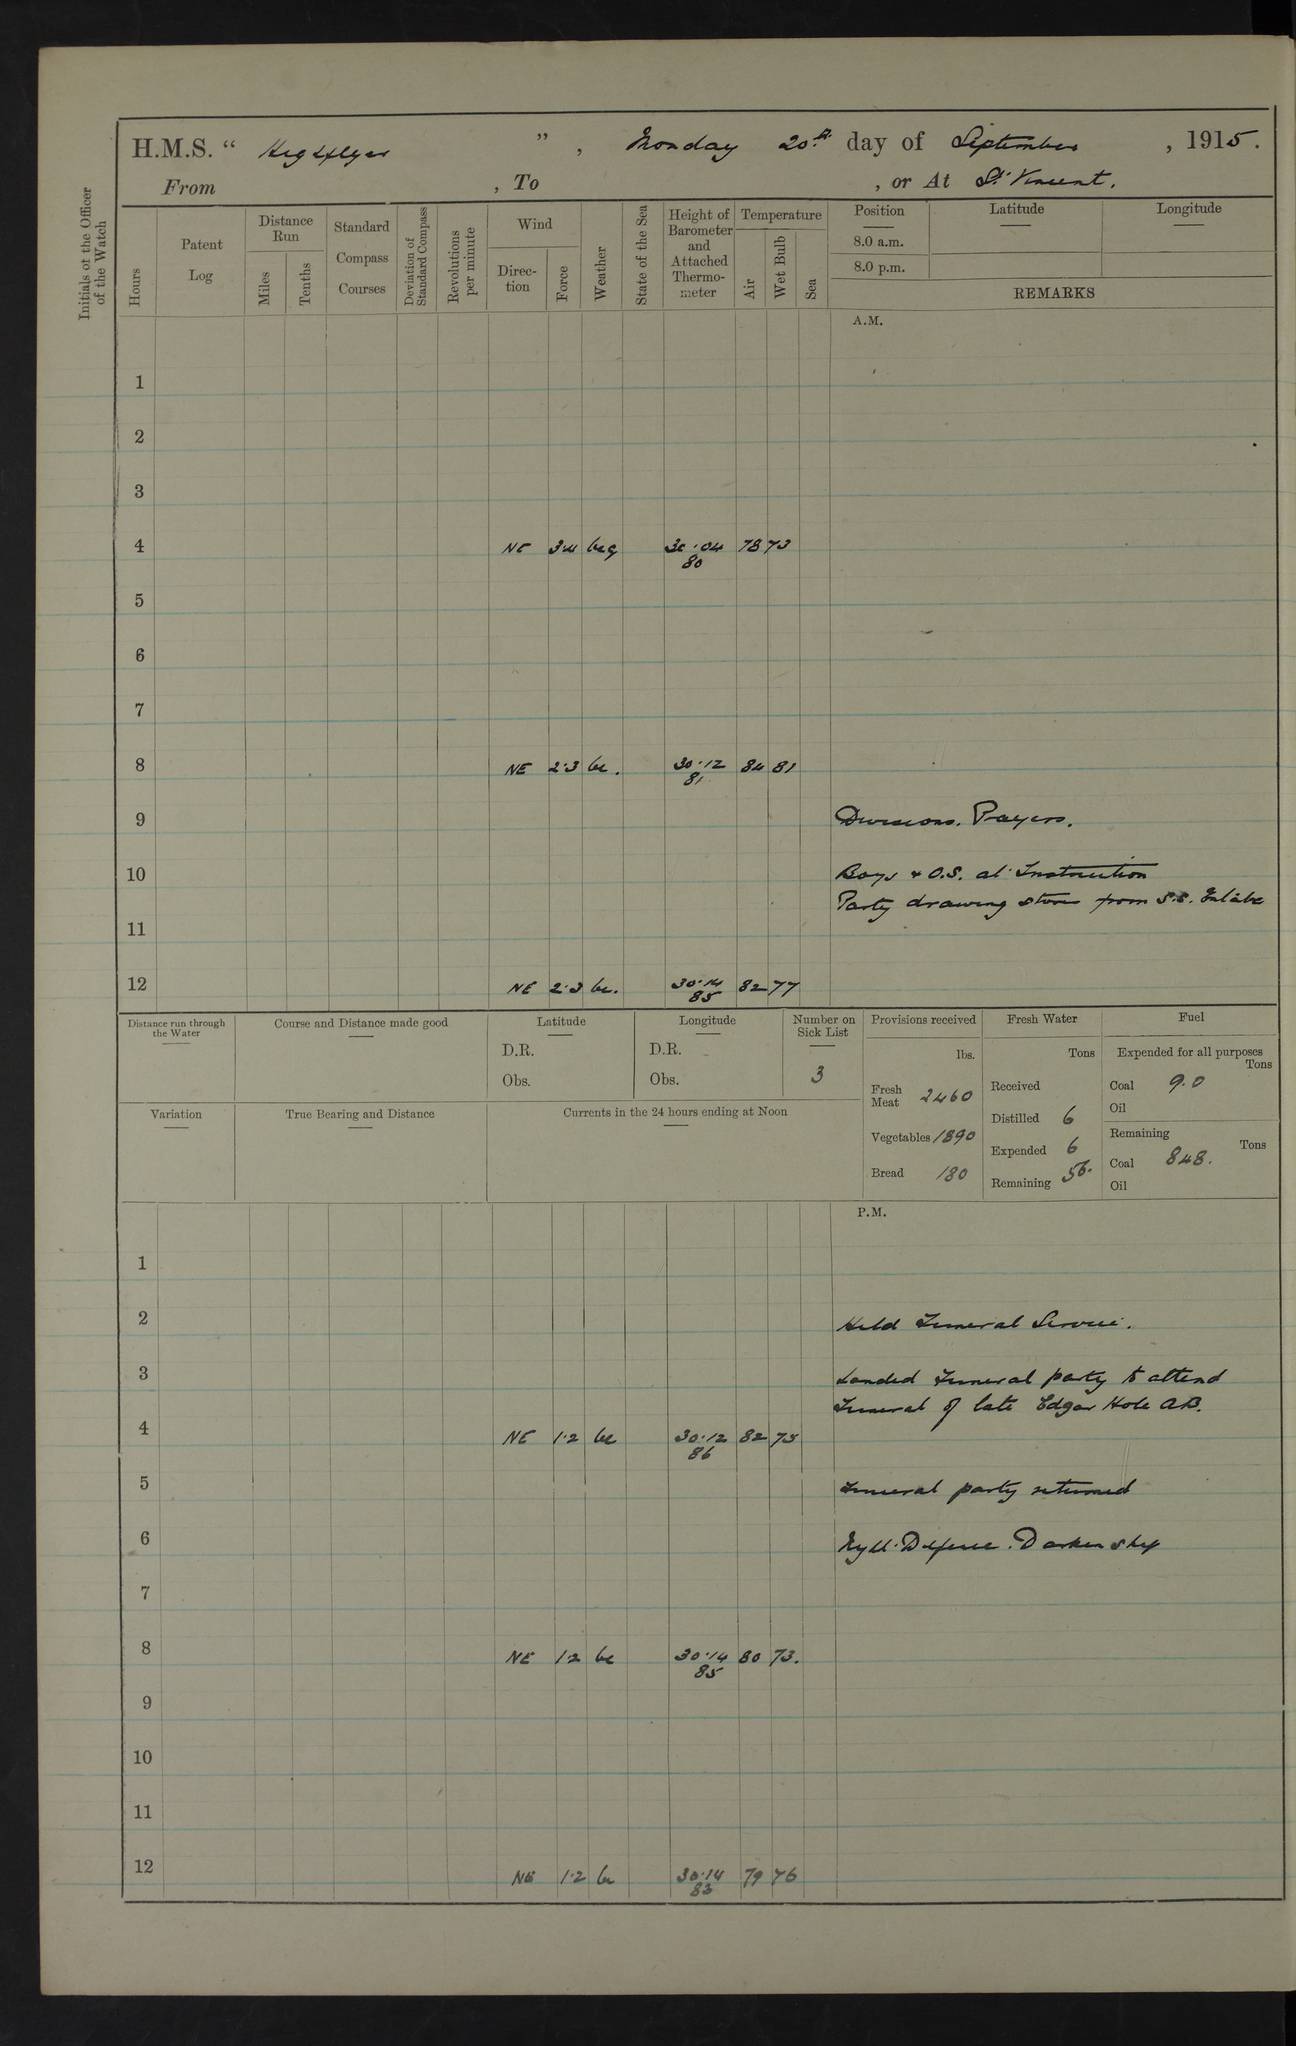 H.M.S. “ Highflyer ” , Monday 20th day of September , 1915 .
From , To , or At St. Vincent.
Initials of the Officer of the Watch
Hours
Patent Log
Distance Run
Miles
Tenths
Standard Compass Courses
Deviation of Standard Compass
Revolutions per minute
Wind
Direction
Force
Weather
State of the Sea
Height of Barometer and Attached Thermometer
Temperature
Air
Wet Bulb
Sea
Position
Latitude
Longitude
8.0 a.m.
8.0 p.m.
REMARKS
A.M.
1
2
3
4 NE 3.4 bcq 30.04 78 73
80
5
6
7
8 NE 2.3 bc. 30.12 84 81
81
9 Divisions. Prayers.
10 Boys & O.S. at Instruction
Party drawing stores from S.S.
11
12 NE 2.3 bc. 30.14 82 77
85
Distance run through the Water
Course and Distance made good
Latitude
D.R.
Obs.
Longitude
D.R.
Obs.
Number on Sick List
3
Provisions received
lbs.
Fresh Meat 2460
Vegetables 1890
Bread 180
Fresh Water
Tons
Received
Distilled 6
Expended 6
Remaining 56.
Fuel
Expended for all purposes
Tons
Coal 9.0
Oil
Remaining
Tons
Coal 848.
Oil
Variation
True Bearing and Distance
Currents in the 24 hours ending at Noon
P.M.
1
2 Held Funeral Service.
3 Landed Funeral party to attend
Funeral of late Edgar Hole A.B.
4 NE 1.2 bc 30.12 82 75
86
5 Funeral party returned
6 Night Defence. Darken ship
7
8 NE 1.2 bc 30.14 80 73.
85
9
10
11
12 NE 1.2 bc 30.14 79 76
83